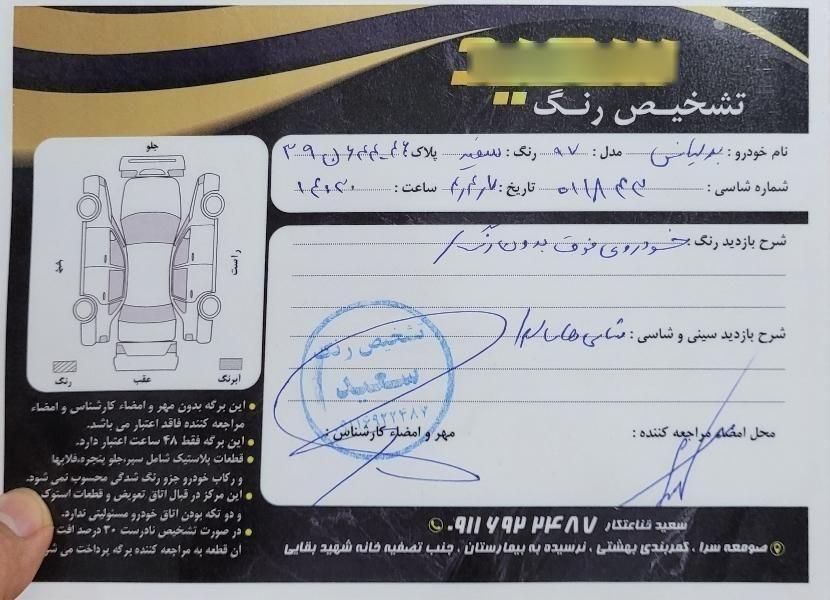 تشخیص رنگ
نام خودرو : برلیانس مدل : ۹۷ رنگ : سفید پلاک
شماره شاسی : ۵۱۱۸۴۳ تاریخ : ساعت :
شرح بازدید رنگ : خودروی فوق بدون رنگ
شرح بازدید سینی و شاسی : شاسی ها سالم
محل امضاء مراجعه کننده :
مهر و امضاء کارشناس :
تشخیص رنگ
سعید
جلو
راست
چپ
عقب
رنگ
آبرنگ
این برگه بدون مهر و امضاء کارشناس و امضاء
مراجعه کننده فاقد اعتبار می باشد.
این برگه فقط ۴۸ ساعت اعتبار دارد.
قطعات پلاستیک شامل سپر،جلو پنجره،فلاپها
و رکاب خودرو جزو رنگ شدگی محسوب نمی شود.
این مرکز در قبال اتاق تعویض و قطعات استوک
و دو تکه بودن اتاق خودرو مسئولیتی ندارد.
در صورت تشخیص نادرست ۳۰ درصد افت
آن قطعه به مراجعه کننده برگه پرداخت می
سعید قناعتکار ۰۹۱۱ ۶۹۲ ۲۴۸۷
صومعه سرا ، کمربندی بهشتی ، نرسیده به بیمارستان ، جنب تصفیه خانه شهید بقایی